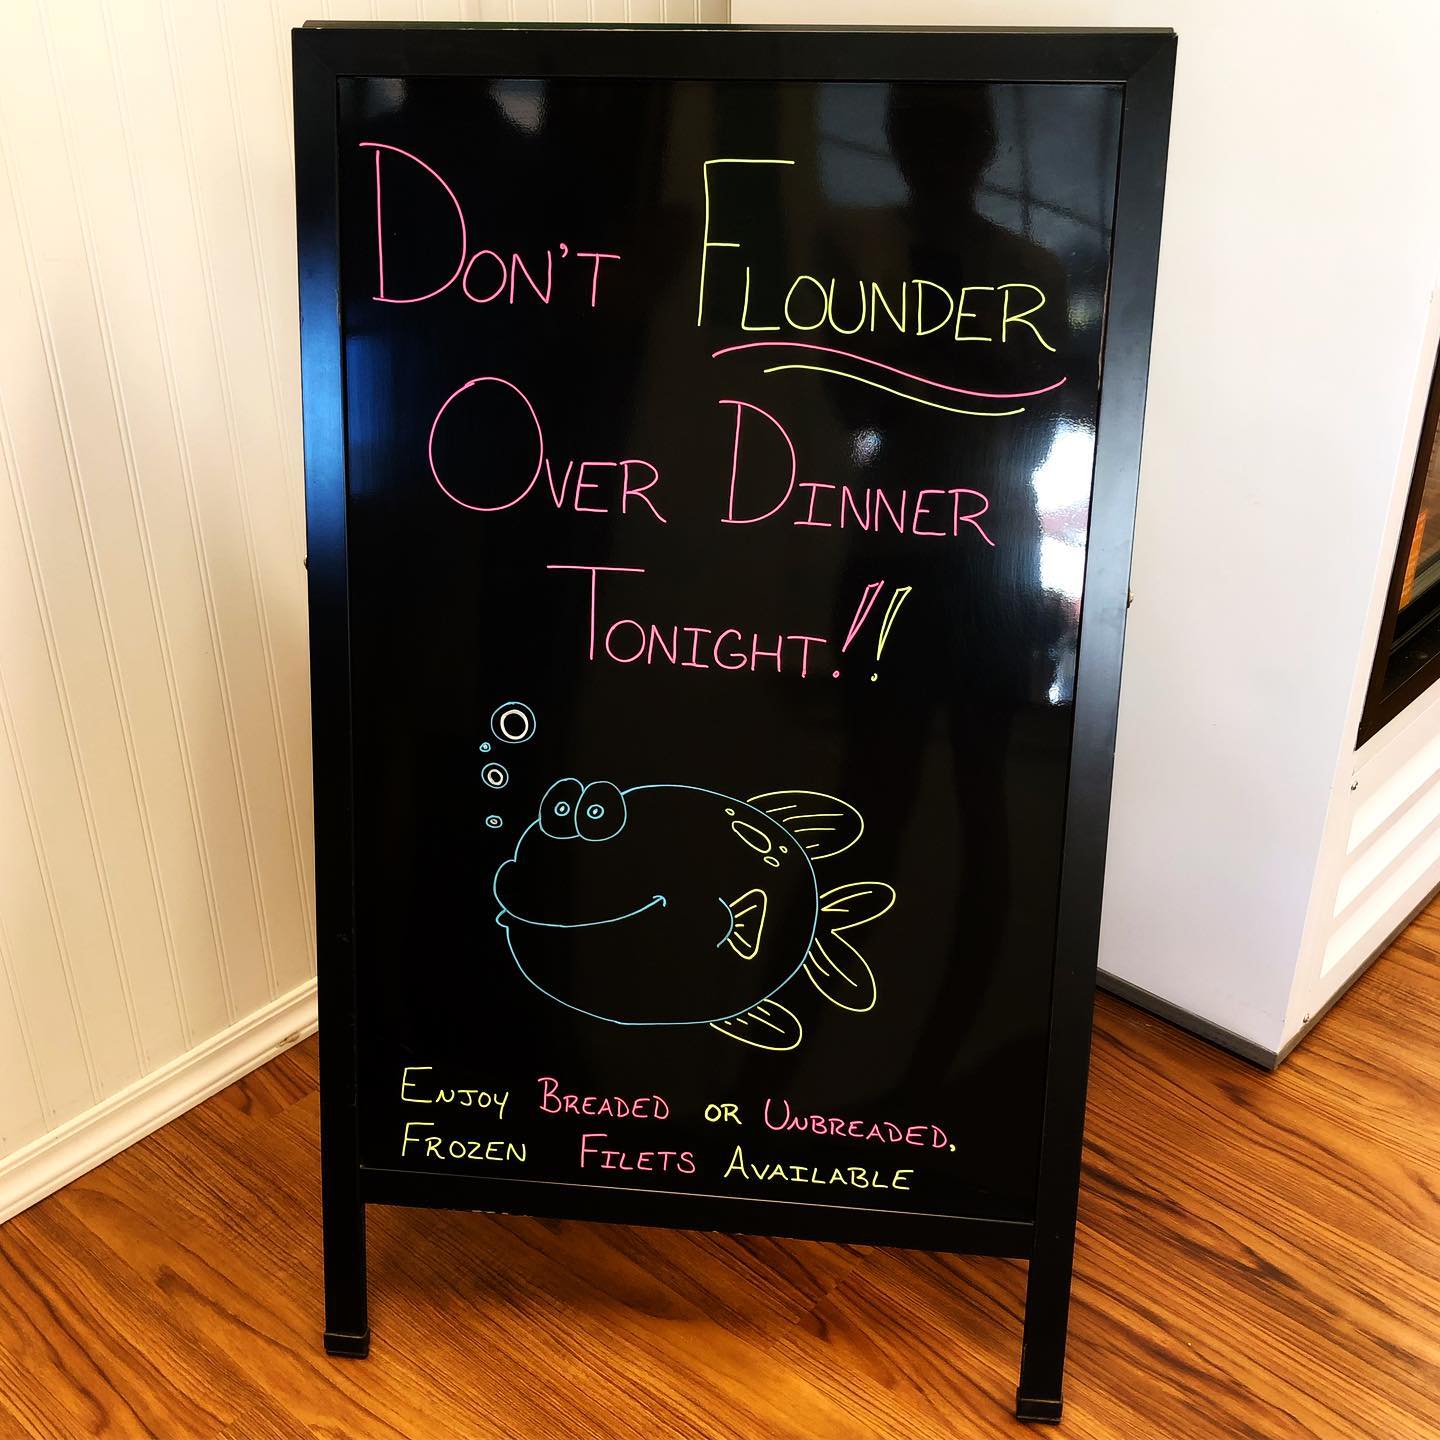 DON'T FLOUNDER
OVER DINNER
TONIGHT!!
ENJOY BREADED OR UNBREADED,
FROZEN FILETS AVAILABLE